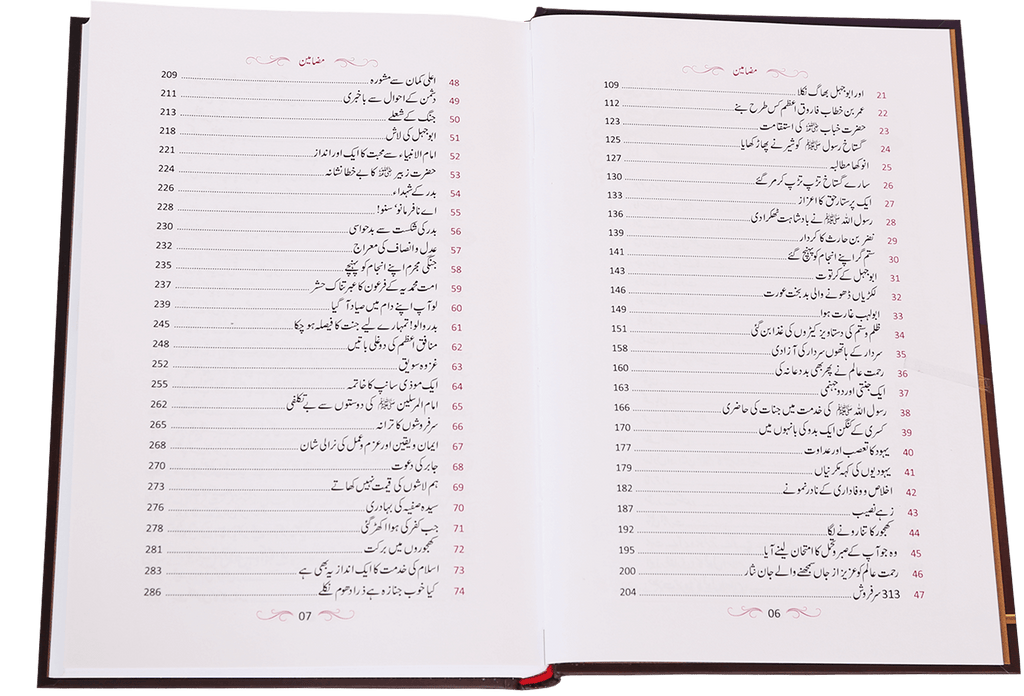 مضامین
21 اور ابوجہل بھاگ نکلا 109
22 عمر بن خطاب فاروق اعظم کس طرح بنے 112
23 حضرت خباب رضی اللہ عنہ کی استقامت 123
24 گستاخ رسول ﷺ کو شیر نے پھاڑ کھایا 125
25 انوکھا مطالبہ 127
26 سارے گستاخ تڑپ تڑپ کر مر گئے 130
27 ایک پرستار حق کا اعزاز 133
28 رسول اللہ ﷺ نے بادشاہت ٹھکرا دی 136
29 نضر بن حارث کا کردار 139
30 ستم گر اپنے انجام کو پہنچ گئے 141
31 ابوجہل کے کرتوت 143
32 لکڑیاں ڈھونے والی بدبخت عورت 146
33 ابولہب غارت ہوا 149
34 ظلم و ستم کی دستاویز کیڑوں کی غذا بن گئی 151
35 سردار کے ہاتھوں سردار کی آزادی 158
36 رحمت عالم نے پھر بھی بددعا نہ کی 160
37 ایک جنتی اور دو جہنمی 163
38 رسول اللہ ﷺ کی خدمت میں جنات کی حاضری 166
39 کسریٰ کے کنگن ایک بدو کی بانہوں میں 170
40 یہود کا تعصب اور عداوت 177
41 یہودیوں کی کہہ مکرنیاں 179
42 اخلاص و وفاداری کے نادر نمونے 182
43 زہے نصیب 187
44 کھجور کا تنا رونے لگا 192
45 وہ جو آپ کے صبر و تحمل کا امتحان لینے آیا 195
46 رحمت عالم کو عزیز از جاں سمجھنے والے جان نثار 200
47 313 سرفروش 204
06
مضامین
48 اعلی کمان سے مشورہ 209
49 دشمن کے احوال سے باخبری 211
50 جنگ کے شعلے 213
51 ابوجہل کی لاش 218
52 امام الانبیاء سے محبت کا ایک اور انداز 221
53 حضرت زبیر رضی اللہ عنہ کا بے خطا نشانہ 224
54 بدر کے شہداء 226
55 اے نافرمانو' سنو! 228
56 بدر کی شکست سے بدحواسی 230
57 عدل و انصاف کی معراج 232
58 جنگی مجرم اپنے انجام کو پہنچے 235
59 امت محمدیہ کے فرعون کا عبرتناک حشر 237
60 لو آپ اپنے دام میں صیاد آ گیا 239
61 بدر والو! تمہارے لیے جنت کا فیصلہ ہو چکا 245
62 منافق اعظم کی دوغلی باتیں 248
63 غزوہ سویق 252
64 ایک موذی سانپ کا خاتمہ 255
65 امام المرسلین ﷺ کی دوستوں سے بے تکلفی 262
66 سرفروشوں کا ترانہ 265
67 ایمان و یقین اور عزم و عمل کی نرالی شان 268
68 جابر کی دعوت 270
69 ہم لاشوں کی قیمت نہیں کھاتے 273
70 سیدہ صفیہ کی بہادری 276
71 جب کفر کی ہوا اکھڑ گئی 278
72 کھجوروں میں برکت 281
73 اسلام کی خدمت کا ایک انداز یہ بھی ہے 283
74 کیا خوب جنازہ ہے ذرا دھوم نکلے 286
07